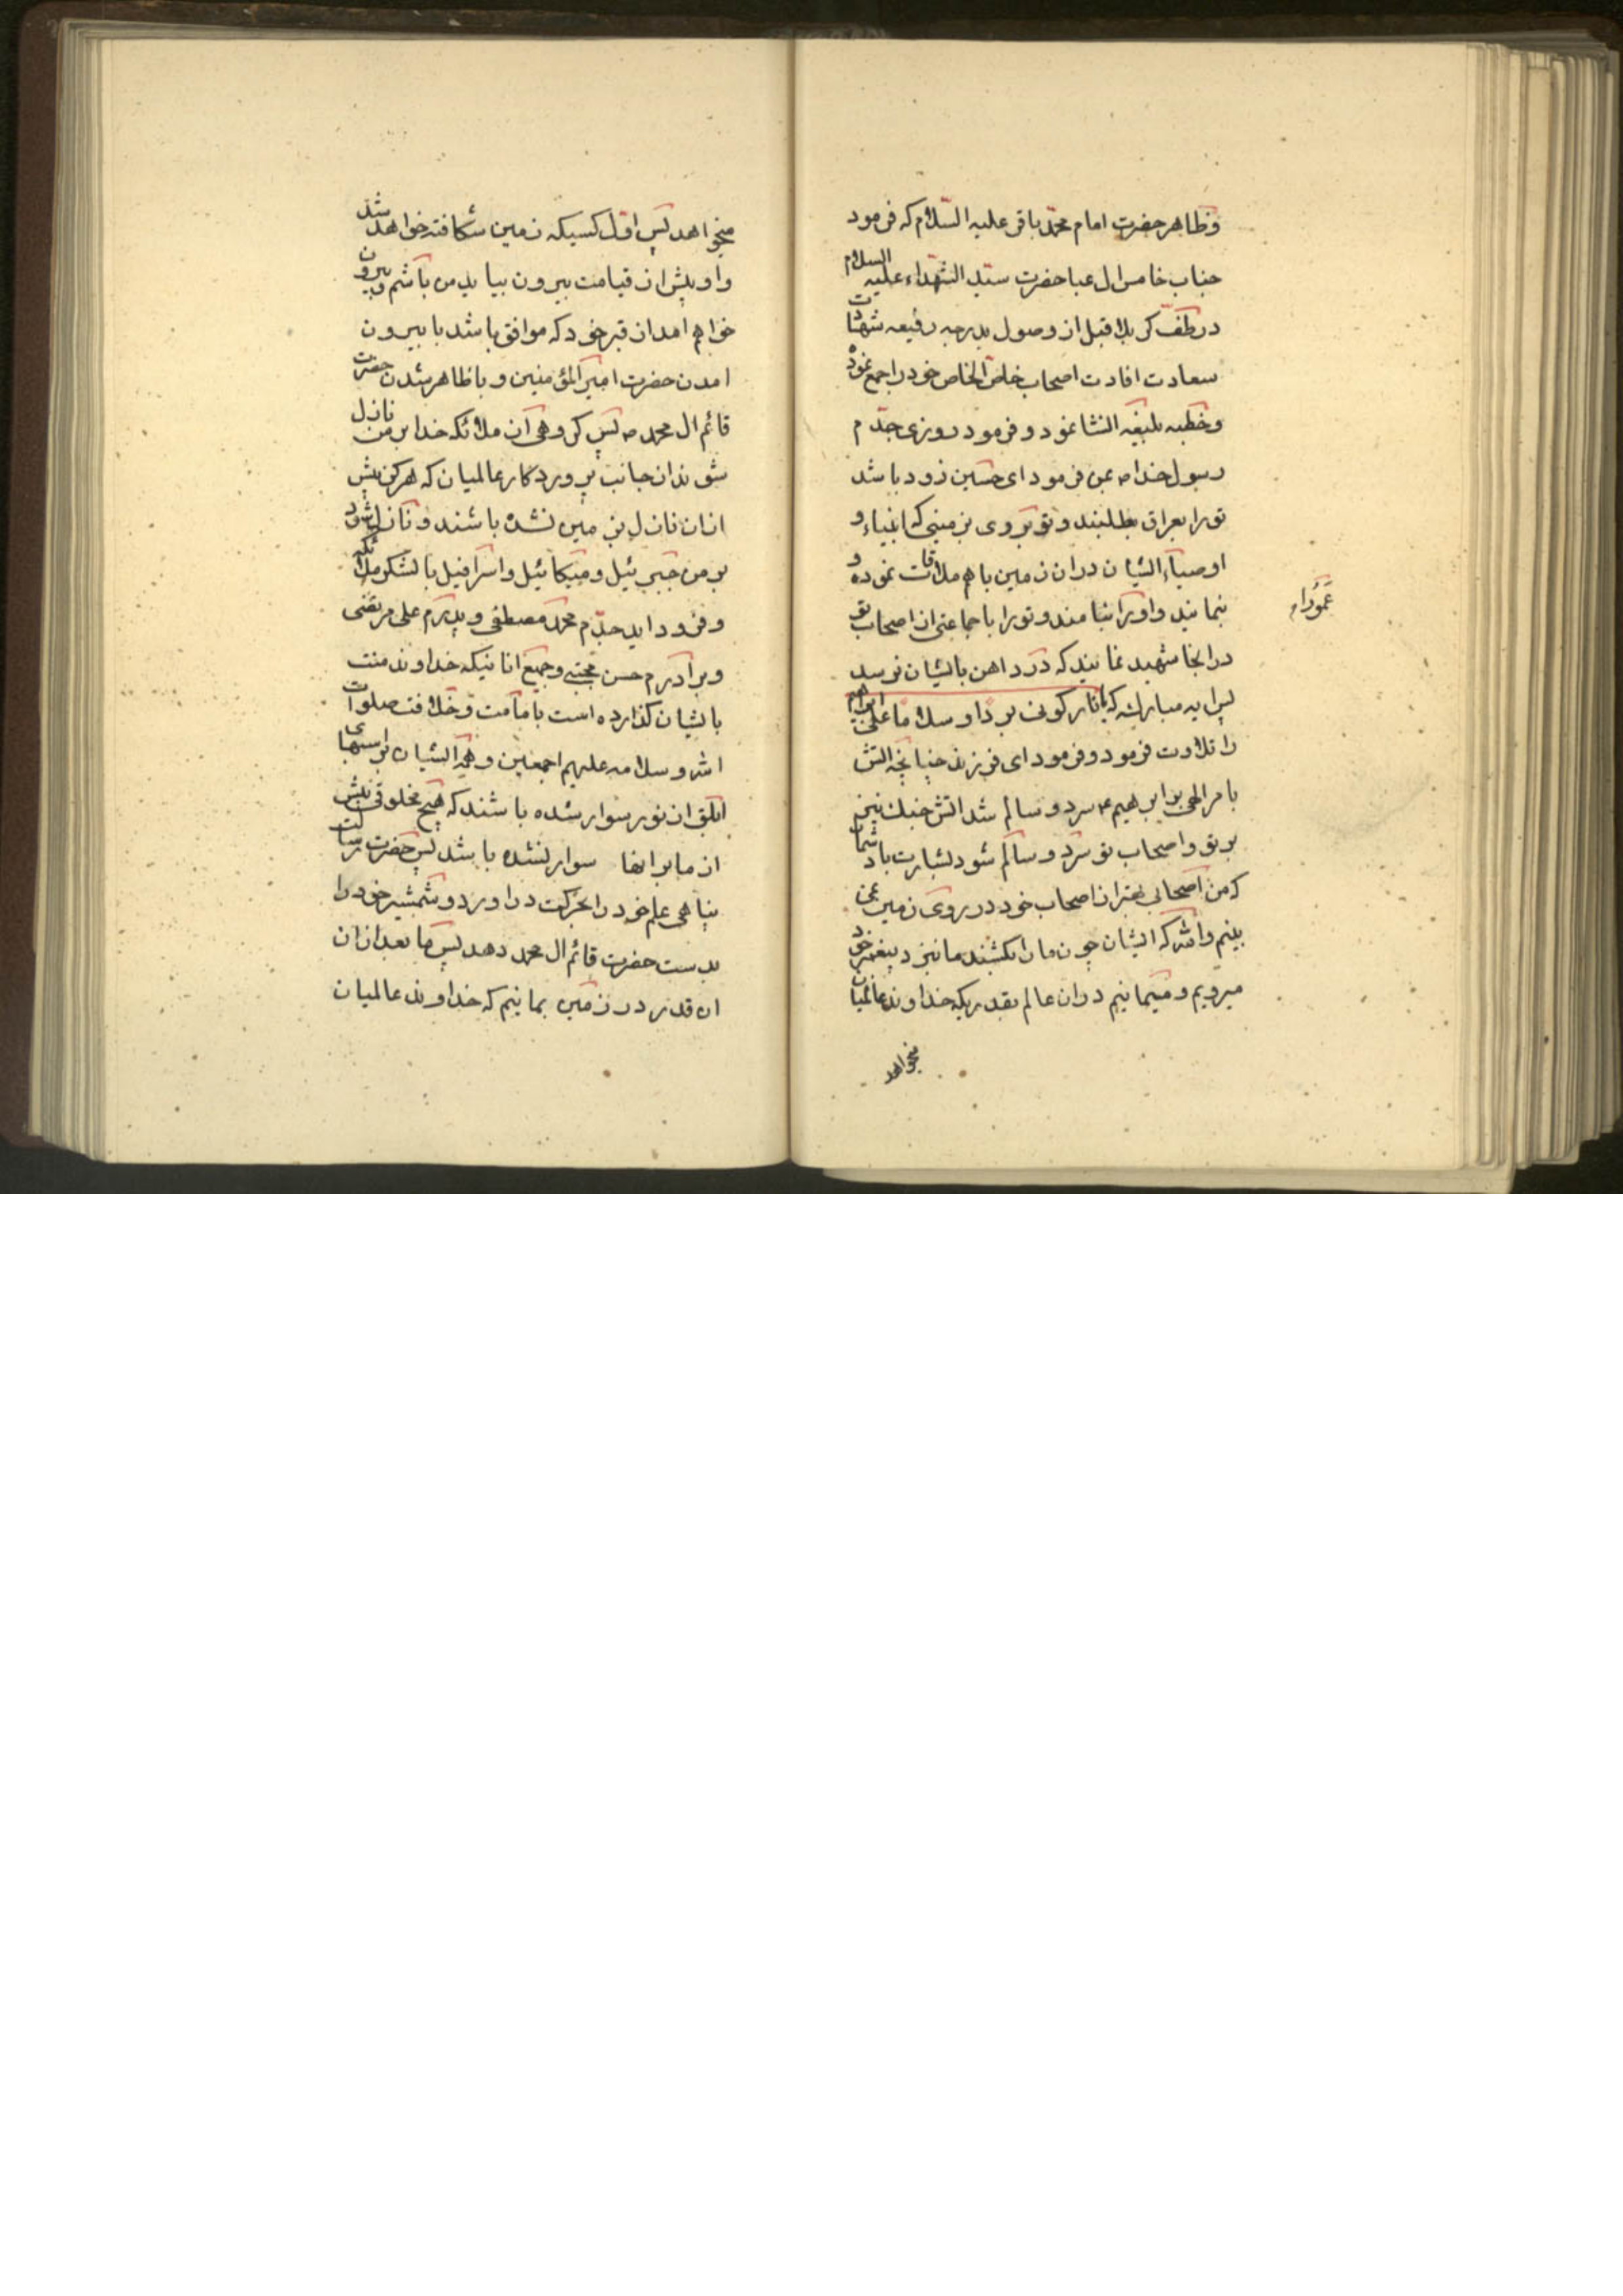 و ظاهر حضرت امام محمد باقر علیه السلام که فرمود
جناب خامس ال عبا حضرت سید الشهداء علیه السلام
در طف کربلا قبل از وصول بدرجه رفیعه شهادت
سعادت افادت اصحاب خاص الخاص خود را جمع نموده
و خطبه بلیغه انشا نمود و فرمود روزی جدم
رسول خدا ص بمن فرمود ای حسین زود باشد
تو را بعراق بطلبند و تو بروی بزمینی که انبیاء و
اوصیاء ایشان در ان زمین با هم ملاقات نموده و
بنمایند و او را بنامند و تو را با جماعتی از اصحاب تو
عمودا
در انجا شهید نمایند که درد اهن بایشان نرسد
پس ایه مبارکه یا نار کونی بردا و سلاما علی ابراهیم
را تلاوت فرمود و فرمود ای فرزند چنانچه اتش
بامر الهی بر ابرهیم ع سرد و سالم شد اتش جنك نیز
بر تو و اصحاب تو سرد و سالم شود بشارت باد شما
که من اصحابی بهتر از اصحاب خود در روی زمین نمی
بینم والله که ایشان چون ما را بکشند ما نیز د پیغمبر خود
میرویم و میمانیم در ان عالم بقدریکه خداوند عالمیان
بخواهد
میخواهد پس اول کسیکه زمین شکافته خواهد شد
و او پیش از قیامت بیرون بیاید من باشم و بیرون
خواهم امد از قبر خود که موافق باشد با بیرون
امدن حضرت امیر المؤمنین و با ظاهر شدن حضرت
قائم ال محمد ص پس کروهی از ملائکه خدا بر من نازل
شوند از جانب پروردکار عالمیان که هرکز پیش
از ان نازل بزمین نشده باشند و نازل شود
بر من جبرئیل و میکائیل و اسرافیل با لشکر ملائکه
و فرود اید جدم محمد مصطفی و پدرم علی مرتضی
و برادرم حسن مجتبی و جمیع انانیکه خداوند منت
بایشان کذارده است بامامت و خلافت صلوات
الله و سلامه علیهم اجمعین و همه ایشان بر اسبهای
ابلق از نور سوار شده باشند که هیچ مخلوقی پیش
از ما بر انها سوار نشده باشد پس حضرت رسالت
پناهی علم خود را بحرکت در اورد و شمشیر خود را
بدست حضرت قائم ال محمد دهد پس ما بعد از ان
ان قدر در زمین بمانیم که خداوند عالمیان